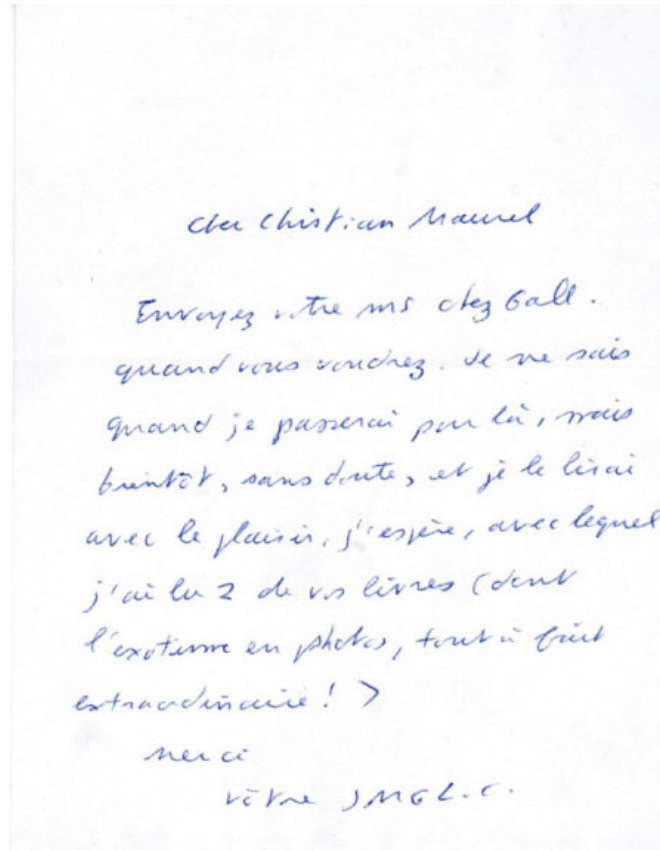 Cher Christian Maurel
Envoyez votre ms chez Gall.
quand vous voudrez. Je ne sais
quand je passerai par là, mais
bientôt, sans doute, et je le lirai
avec le plaisir, j'espère, avec lequel
j'ai lu 2 de vos livres (dont
l'exotisme en photos, tout à fait
extraordinaire ! )
Merci
vôtre JMGL.C.